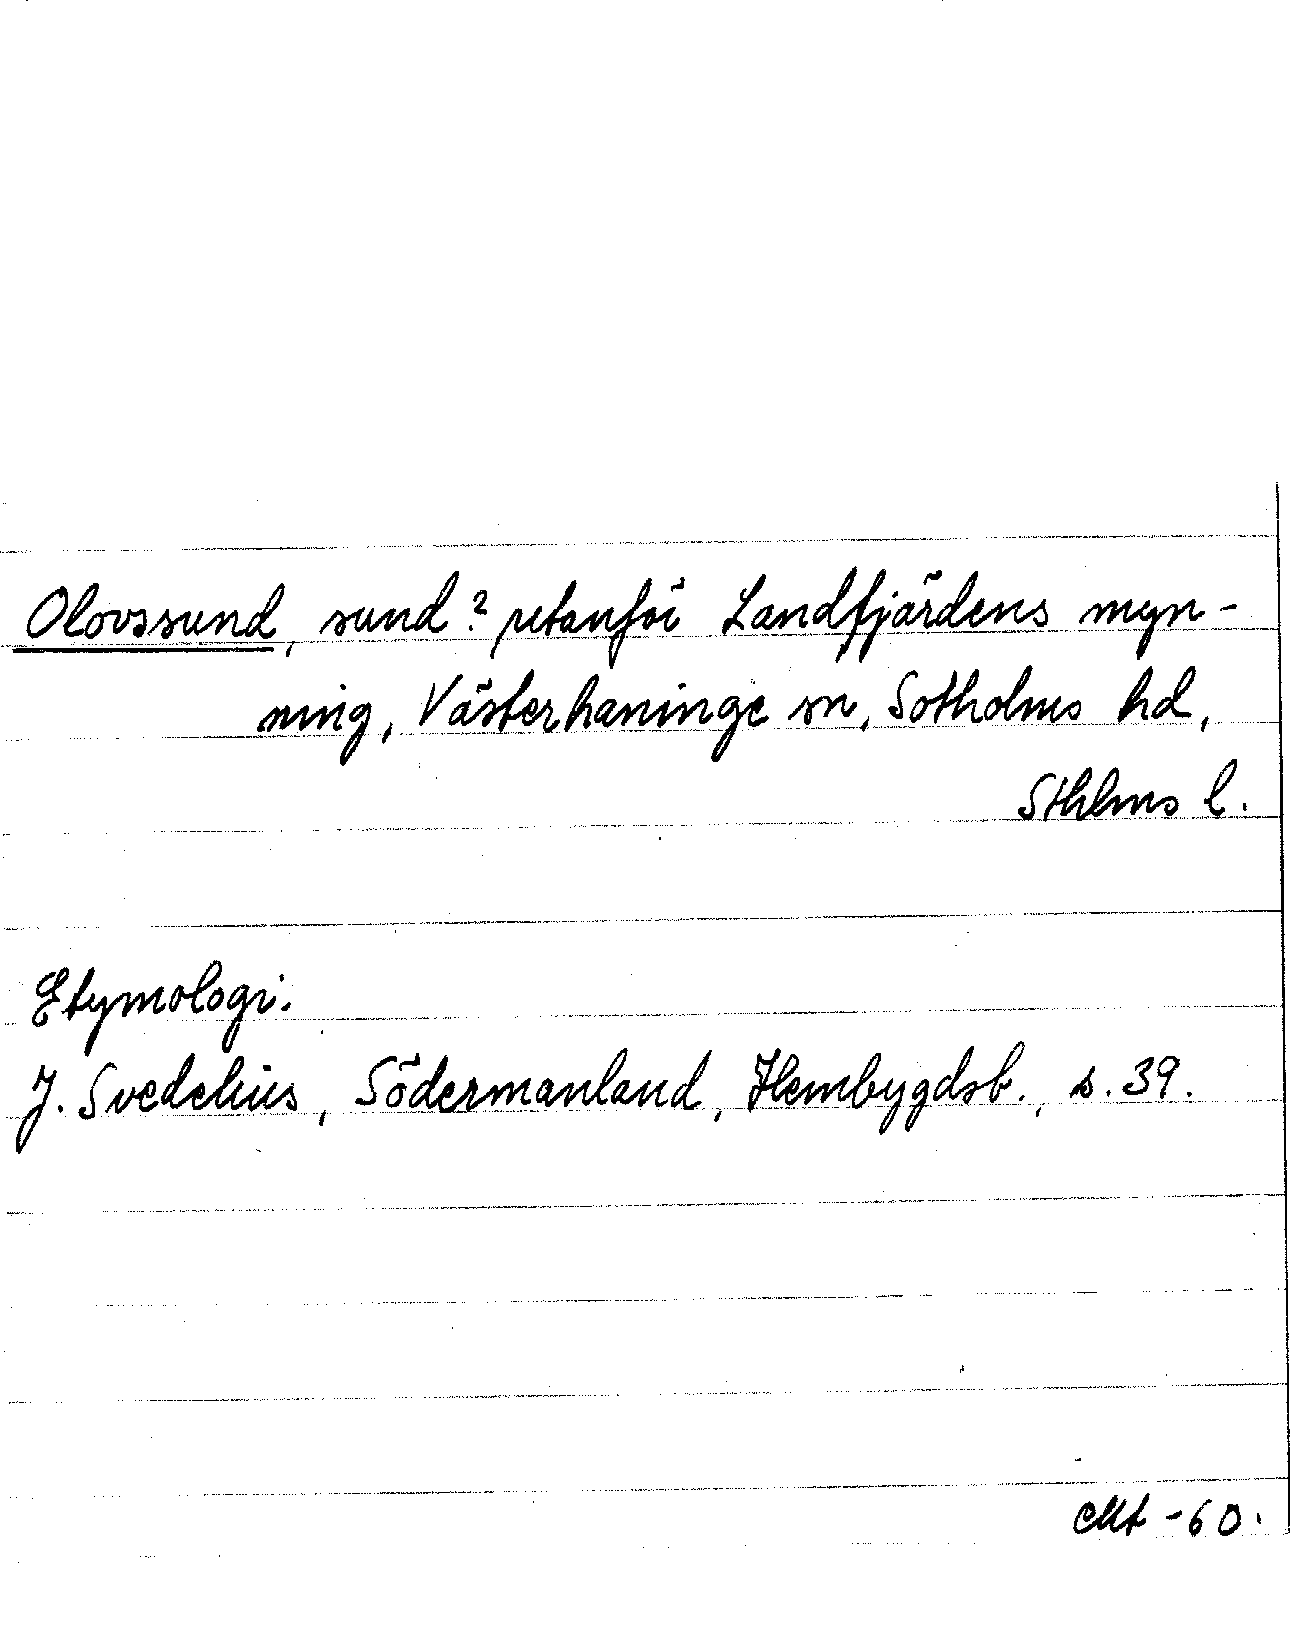 Olovssund, sund? utanför Landfjärdens myn-
ning, Västerhaninge sn, Sotholms hd,
Sthlms l.
Etymologi.
J. Svedelius, Södermanland, Hembygdsb., s. 39.
-60.